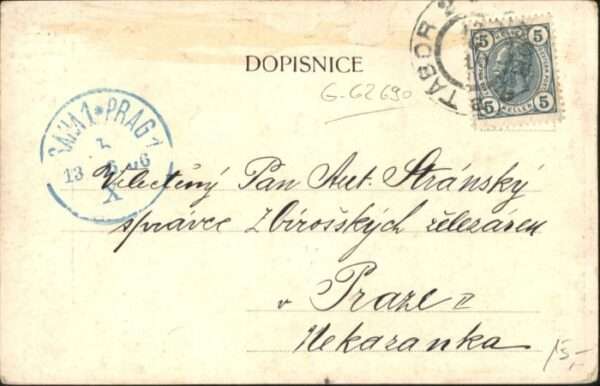 DOPISNICE
G-62690
TABOR
5 5
5 HELLER 5
PRAHA 1 * PRAG 1
13 6 06
X
Velectěný Pan Ant. Stránský
správce Zbirožských železáren
v Praze II
Nekazanka
15,-